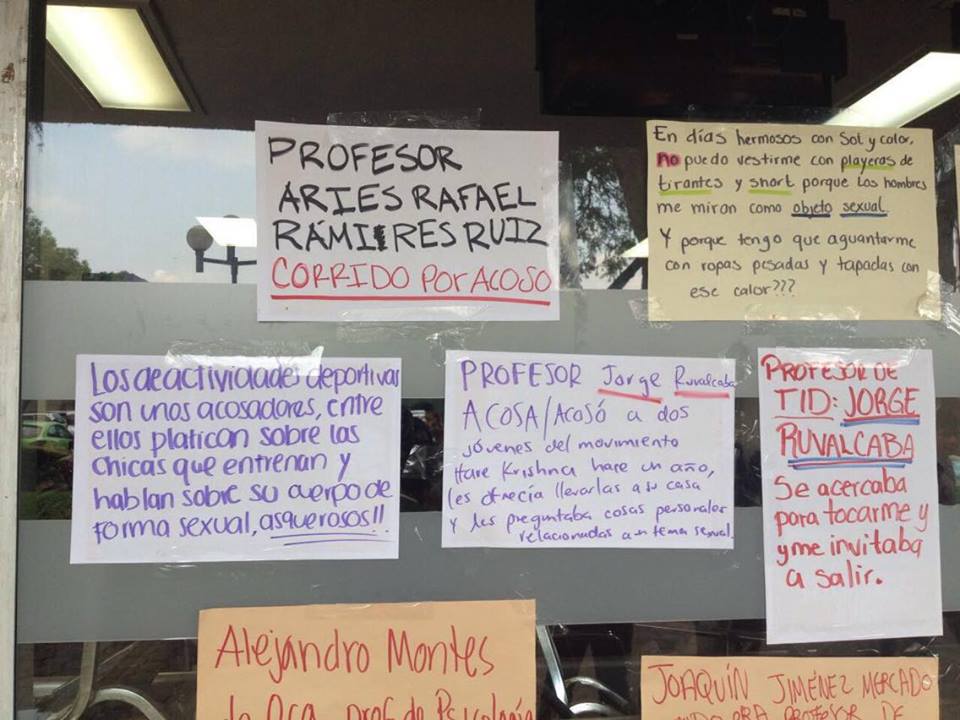 PROFESOR
ARIES RAFAEL
RAMIRES RUIZ
CORRIDO POR ACOSO
En días hermosos con Sol y calor,
no puedo vestirme con playeras de
tirantes y short porque los hombres
me miran como objeto sexual.
Y porque tengo que aguantarme
con ropas pesadas y tapadas con
ese calor???
Los de actividades deportivas
son unos acosadores, entre
ellos platican sobre las
chicas que entrenan y
hablan sobre su cuerpo de
forma sexual, asquerosos!!
PROFESOR Jorge Ruvalcaba
ACOSA/ACOSÓ a dos
jóvenes del movimiento
Hare Krishna hace un año,
les ofrecía llevarlas a su casa
y les preguntaba cosas personales
relacionadas a un tema sexual.
PROFESOR DE
TID: JORGE
RUVALCABA
Se acercaba
para tocarme y
y me invitaba
a salir.
Alejandro Montes
de Oca prof de Psicología
JOAQUÍN JIMÉNEZ MERCADO
PROFESOR DE